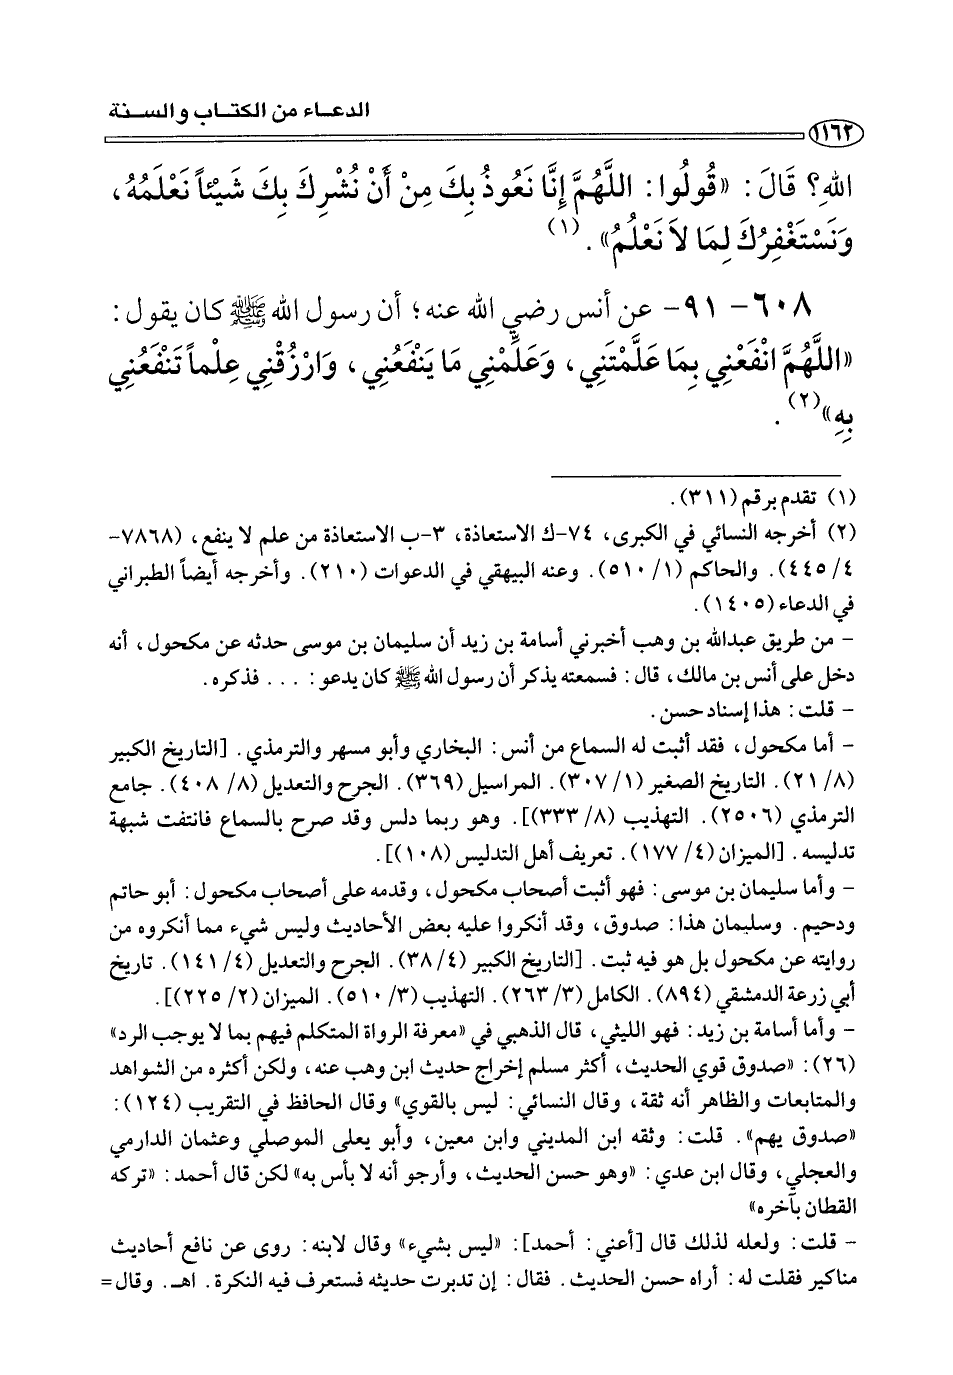 الدعـاء من الكتـاب والسـنة
١١٦٢
اللهِ؟ قَالَ: «قُولُوا: اللَّهُمَّ إِنَّا نَعُوذُ بِكَ مِنْ أَنْ نُشْرِكَ بِكَ شَيْئاً نَعْلَمُهُ،
وَنَسْتَغْفِرُكَ لِمَا لاَ نَعْلُمُ».(١)
٦٠٨- ٩١- عن أنس رضي الله عنه؛ أن رسول الله ﷺ كان يقول:
«اللَّهُمَّ انْفَعْنِي بِمَا عَلَّمْتَنِي، وَعَلِّمْنِي مَا يَنْفَعُنِي، وَارْزُقْنِي عِلْماً تَنْفَعُنِي
بِهِ»(٢).
(١) تقدم برقم (٣١١).
(٢) أخرجه النسائي في الكبرى، ٧٤-ك الاستعاذة، ٣-ب الاستعاذة من علم لا ينفع، (٧٨٦٨-
٤/ ٤٤٥). والحاكم (١/ ٥١٠). وعنه البيهقي في الدعوات (٢١٠). وأخرجه أيضاً الطبراني
في الدعاء (١٤٠٥).
- من طريق عبدالله بن وهب أخبرني أسامة بن زيد أن سليمان بن موسى حدثه عن مكحول، أنه
دخل على أنس بن مالك، قال: فسمعته يذكر أن رسول الله ﷺ كان يدعو: ... فذكره.
- قلت: هذا إسناد حسن.
- أما مكحول، فقد أثبت له السماع من أنس: البخاري وأبو مسهر والترمذي. [التاريخ الكبير
(٨/ ٢١). التاريخ الصغير (١/ ٣٠٧). المراسيل (٣٦٩). الجرح والتعديل (٨/ ٤٠٨). جامع
الترمذي (٢٥٠٦). التهذيب (٨/ ٣٣٣)]. وهو ربما دلس وقد صرح بالسماع فانتفت شبهة
تدليسه. [الميزان (٤/ ١٧٧). تعريف أهل التدليس (١٠٨)].
- وأما سليمان بن موسى: فهو أثبت أصحاب مكحول، وقدمه على أصحاب مكحول: أبو حاتم
ودحيم. وسليمان هذا: صدوق، وقد أنكروا عليه بعض الأحاديث وليس شيء مما أنكروه من
روايته عن مكحول بل هو فيه ثبت. [التاريخ الكبير (٤/ ٣٨). الجرح والتعديل (٤/ ١٤١). تاريخ
أبي زرعة الدمشقي (٨٩٤). الكامل (٣/ ٢٦٣). التهذيب (٣/ ٥١٠). الميزان (٢/ ٢٢٥)].
- وأما أسامة بن زيد: فهو الليثي، قال الذهبي في «معرفة الرواة المتكلم فيهم بما لا يوجب الرد»
(٢٦): «صدوق قوي الحديث، أكثر مسلم إخراج حديث ابن وهب عنه، ولكن أكثره من الشواهد
والمتابعات والظاهر أنه ثقة، وقال النسائي: ليس بالقوي» وقال الحافظ في التقريب (١٢٤):
«صدوق يهم». قلت: وثقه ابن المديني وابن معين، وأبو يعلى الموصلي وعثمان الدارمي
والعجلي، وقال ابن عدي: «وهو حسن الحديث، وأرجو أنه لا بأس به» لكن قال أحمد: «تركه
القطان بآخره»
- قلت: ولعله لذلك قال [أعني: أحمد]: «ليس بشيء» وقال لابنه: روى عن نافع أحاديث
مناكير فقلت له: أراه حسن الحديث. فقال: إن تدبرت حديثه فستعرف فيه النكرة. اهـ. وقال=